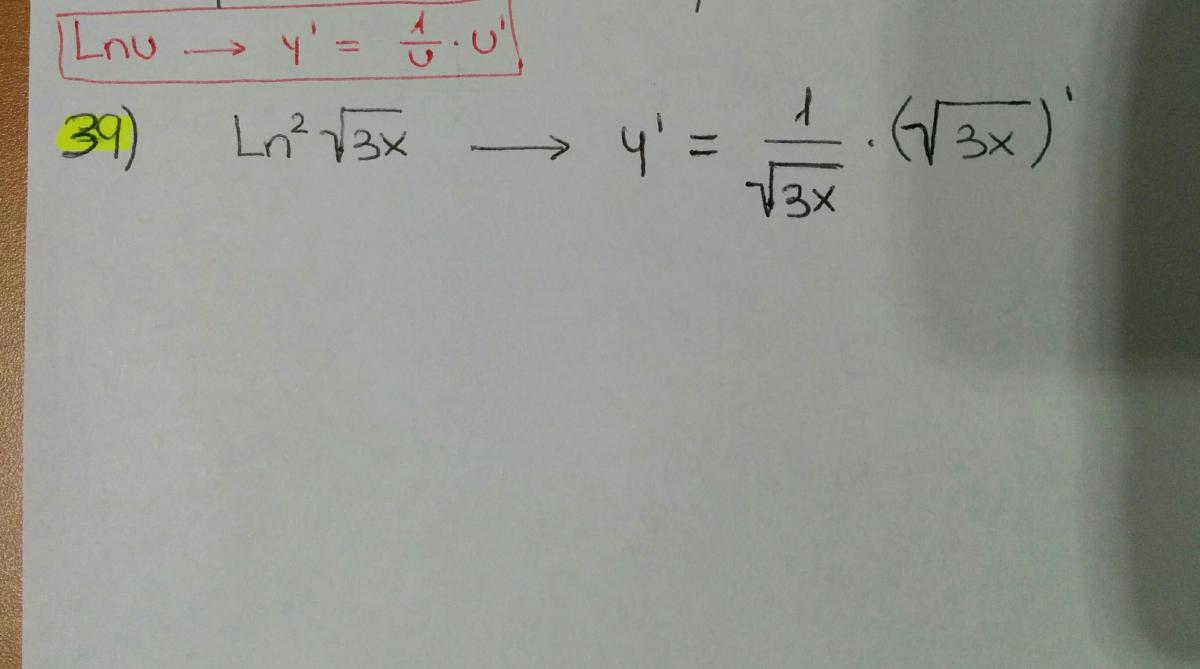 Lnu → y' = 1/u · u'
39) Ln² √3x → y' = 1/√3x · (√3x)'